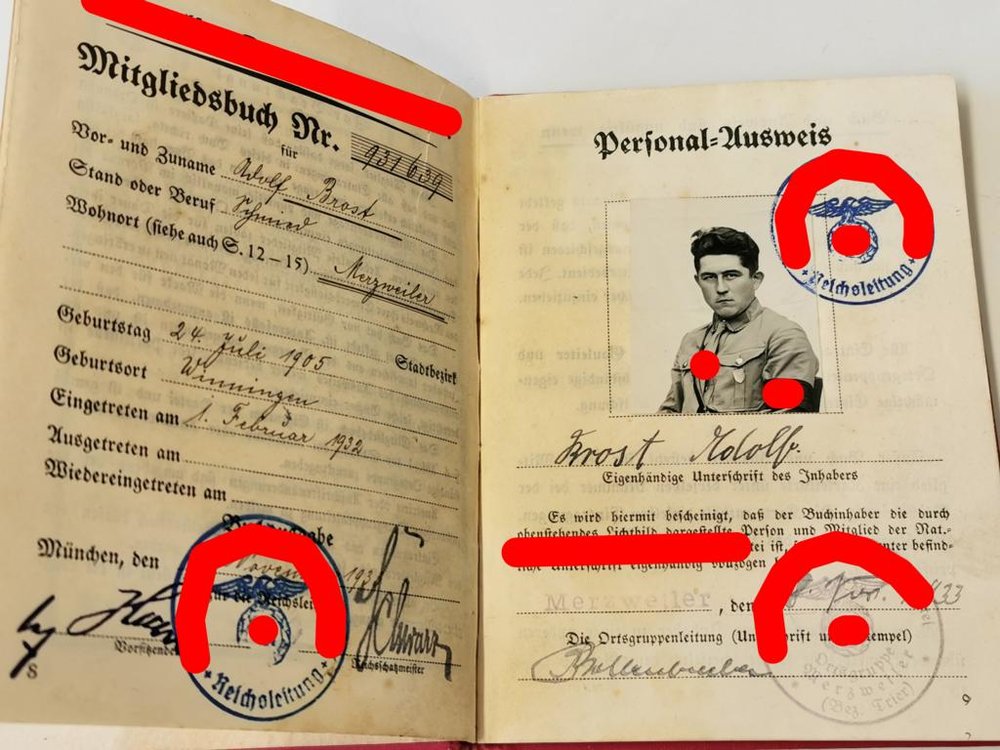 Mitgliedsbuch Nr. 931639
für
Vor- und Zuname Adolf Brost
Stand oder Beruf Schmied
Wohnort (siehe auch S. 12–15) Merzweiler
Geburtstag 24. Juli 1905 Stadtbezirk
Geburtsort Winningen
Eingetreten am 1. Februar 1932
Ausgetreten am
Wiedereingetreten am
München, den
Reichsleitung
8
Personal-Ausweis
Reichsleitung
Brost Adolf.
Eigenhändige Unterschrift des Inhabers
Es wird hiermit bescheinigt, daß der Buchinhaber die durch
obenstehendes Lichtbild dargestellte Person und Mitglied der Nat.-
ist,
befind-
liche Unterschrift eigenhändig vollzogen
Merzweiler, den 33
Die Ortsgruppenleitung
Ortsgruppe
Merzweiler
(Bez. Trier)
9